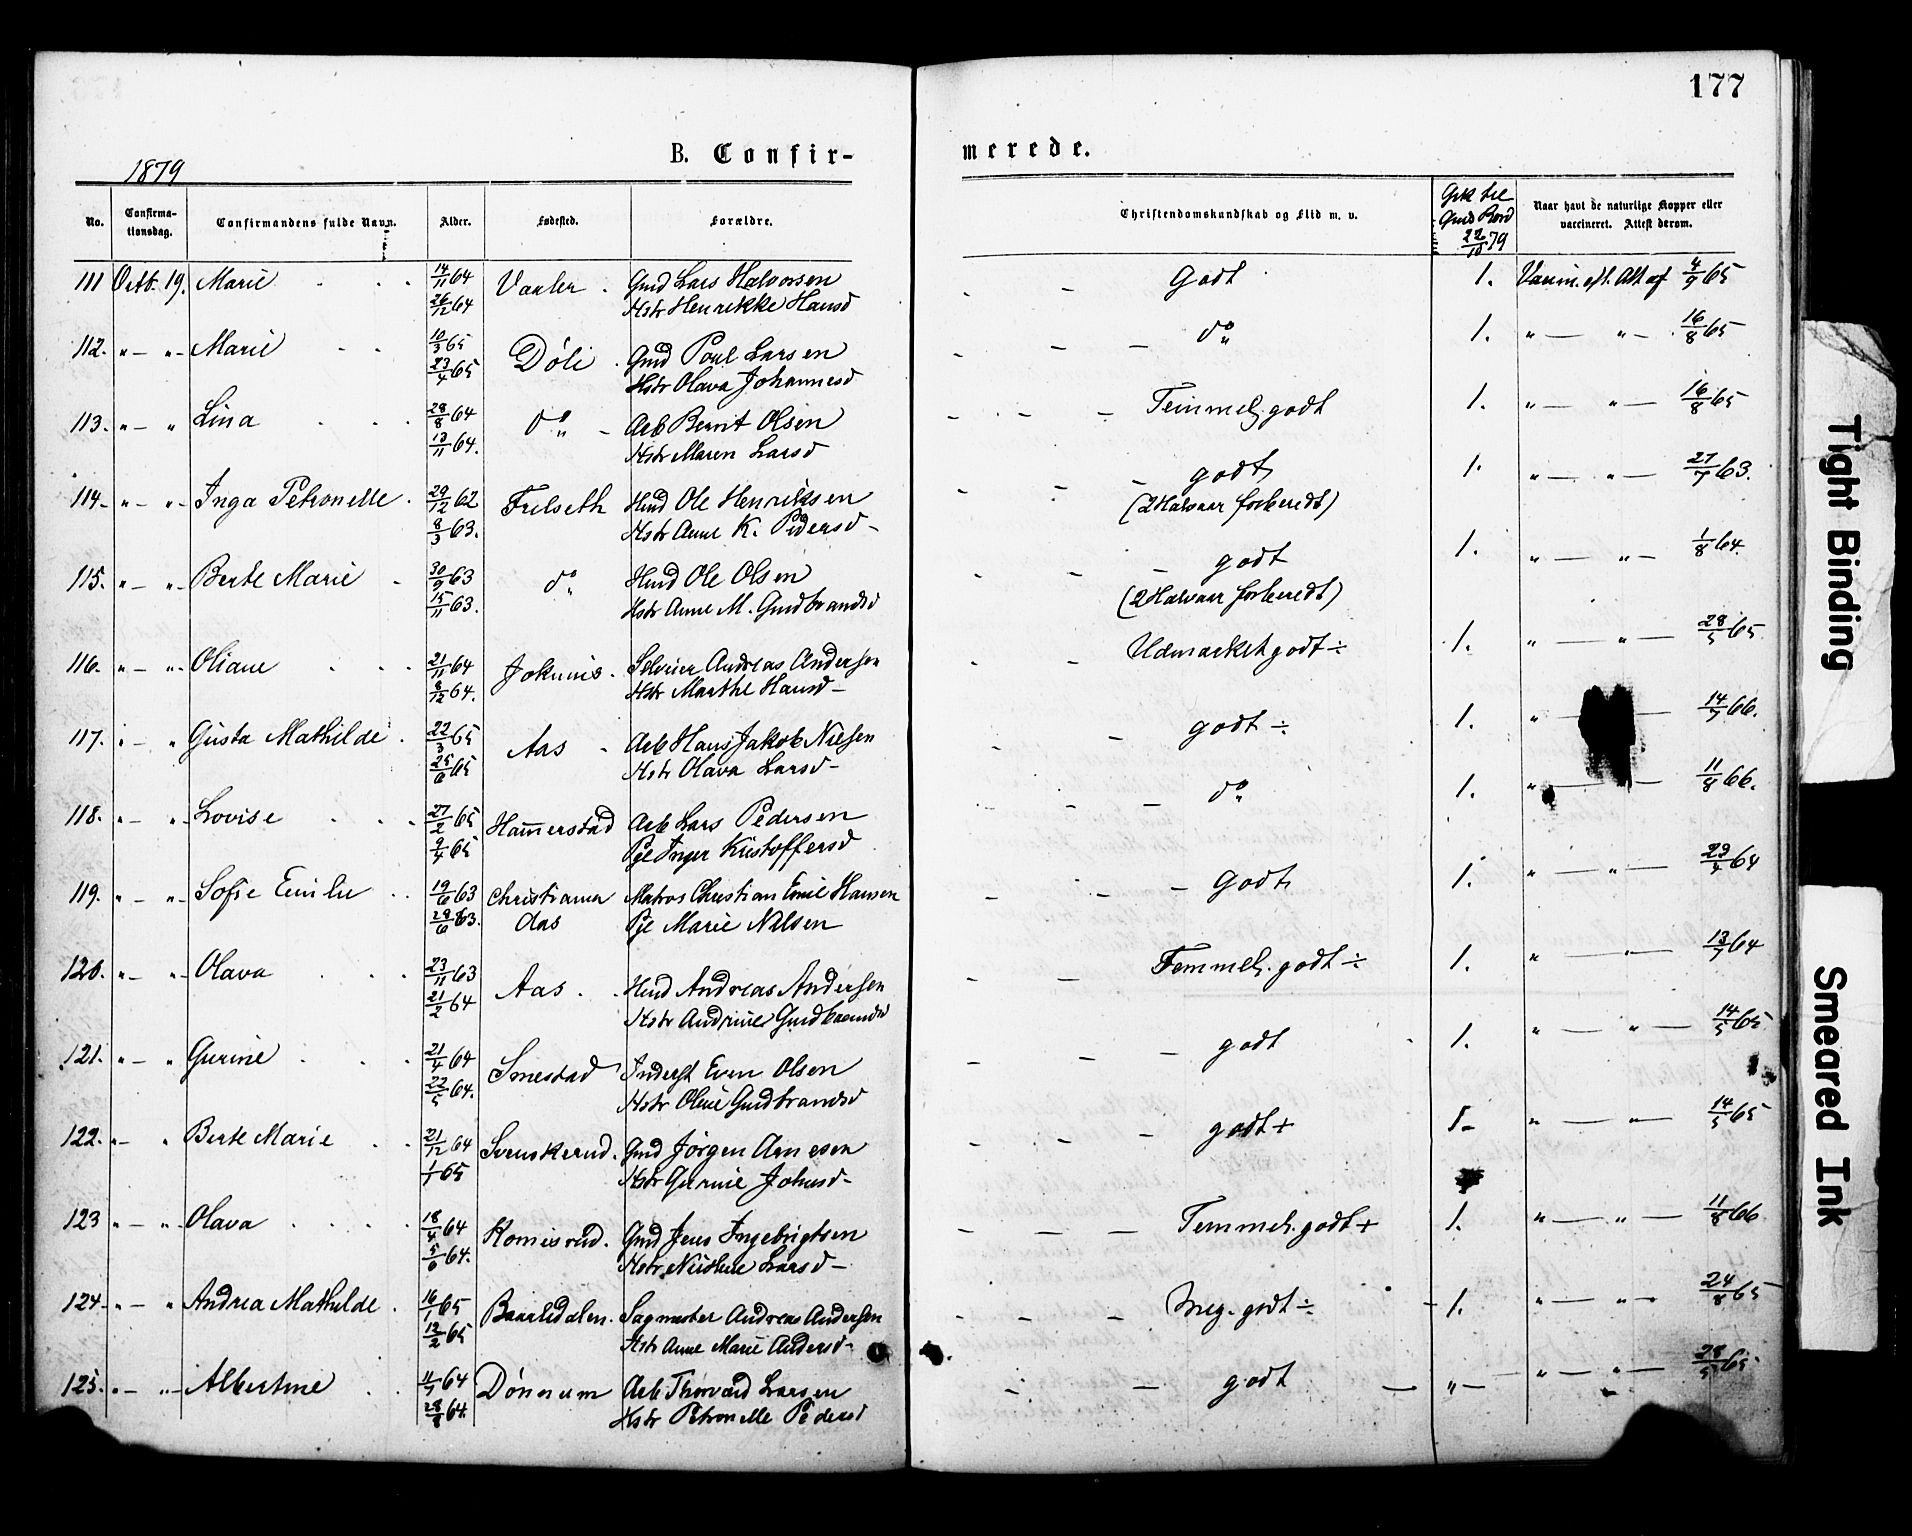 177
1879
B. Confir-
merede.
No.
Confirma-
tionsdag.
Confirmandens fulde Navn.
Alder.
Fødested.
Forældre.
Christendomskundskab og Flid m. v.
Gik til
Guds Bord
22/10 79
Naar havt de naturlige Kopper eller
vaccineret. Attest derom.
111 Octb. 19. Marie 14/11 64 Vaaler Gmd Lars Halvorsen Godt 1. Vaccin. eft. Att af 4/9 65
26/12 64 Hstr Henrikke Hansd
112. " — " - Marie 10/3 65 Döli Gmd Poul Larsen do 1. " — " - 16/8 65
23/4 65 Hstr Olava Johannesd
113. " — " Lina 28/8 64 do Arb Bernt Olsen Temmel. godt 1. " — " — 16/8 65
13/11 64. Hstr Maren Larsd
114 " — " - Inga Petronelle 29/12 62 Frelseth Hmd Ole Henriksen godt 1. " — " — 27/7 63.
8/3 63. Hstr Anne K. Pedersd - (2 Halvaar forberedt)
115. " — " - Berte Marie 30/9 63 do Hmd Ole Olsen godt 1. " — " — 1/8 64.
15/11 63. Hstr Anne M. Gudbrandsd (2 Halvaar forberedt)
116. " — " - Oliane 21/11 64 Andreas Andersen Udmærket godt ÷ 1. " — " — 28/5 65
8/12 64. Hstr Marthe Hansd -
117. " — " Gusta Mathilde 22/3 65 Aas Arb Hans Jakob Nilsen godt ÷ 1. " — 14/7 66.
25/6 65 Hstr Olava Larsd -
118. " — " - Lovise 27/2 65 Hammerstad Arb Lars Pedersen do 1. " — 11/8 66.
9/4 65 Pge Inger Kristoffersd
119. " — " - Sofie Emilie 19/6 63 Christiania Matros Christian Emil Hansen Godt 1. " — " — 29/4 64
28/6 63. Aas Pge Marie Nilsen
120. " — " - Olava 23/11 63 Aas Hmd Andreas Andersen Temmel. godt ÷ 1. " — " — 13/7 64
21/2 64 Hstr Andrine Gudbrandsd
121. " — " Gurine 21/4 64 Smestad Inderst Even Olsen godt 1. " — " — 14/5 65
22/5 64. Hstr Oline Gudbrandsd
122. " — " Berte Marie 21/12 64 Svenskerud Gmd Jörgen Arnesen godt + 1. " — " — 14/5 65
1/1 65 Hstr Gurine Johnsd -
123 " — " - Olava 18/4 64 Komisrud Gmd Jens Ingebrigtsen Temmel. godt + 1. " — " — 11/8 66
5/6 64. Hstr Larsd -
124. " — " Andrea Mathilde 16/1 65 Baarlidalen Sagmester Andreas Andersen Meg. godt ÷ 1. " — " 24/8 65
12/2 65 Hstr Anne Marie Andersd -
125. " — " - Albertine 11/7 64 Dönnum Arb Thorvald Larsen godt " — " — " — 28/5 65
28/8 64. Hstr Petronelle Pedersd
Tight Binding
Smeared Ink